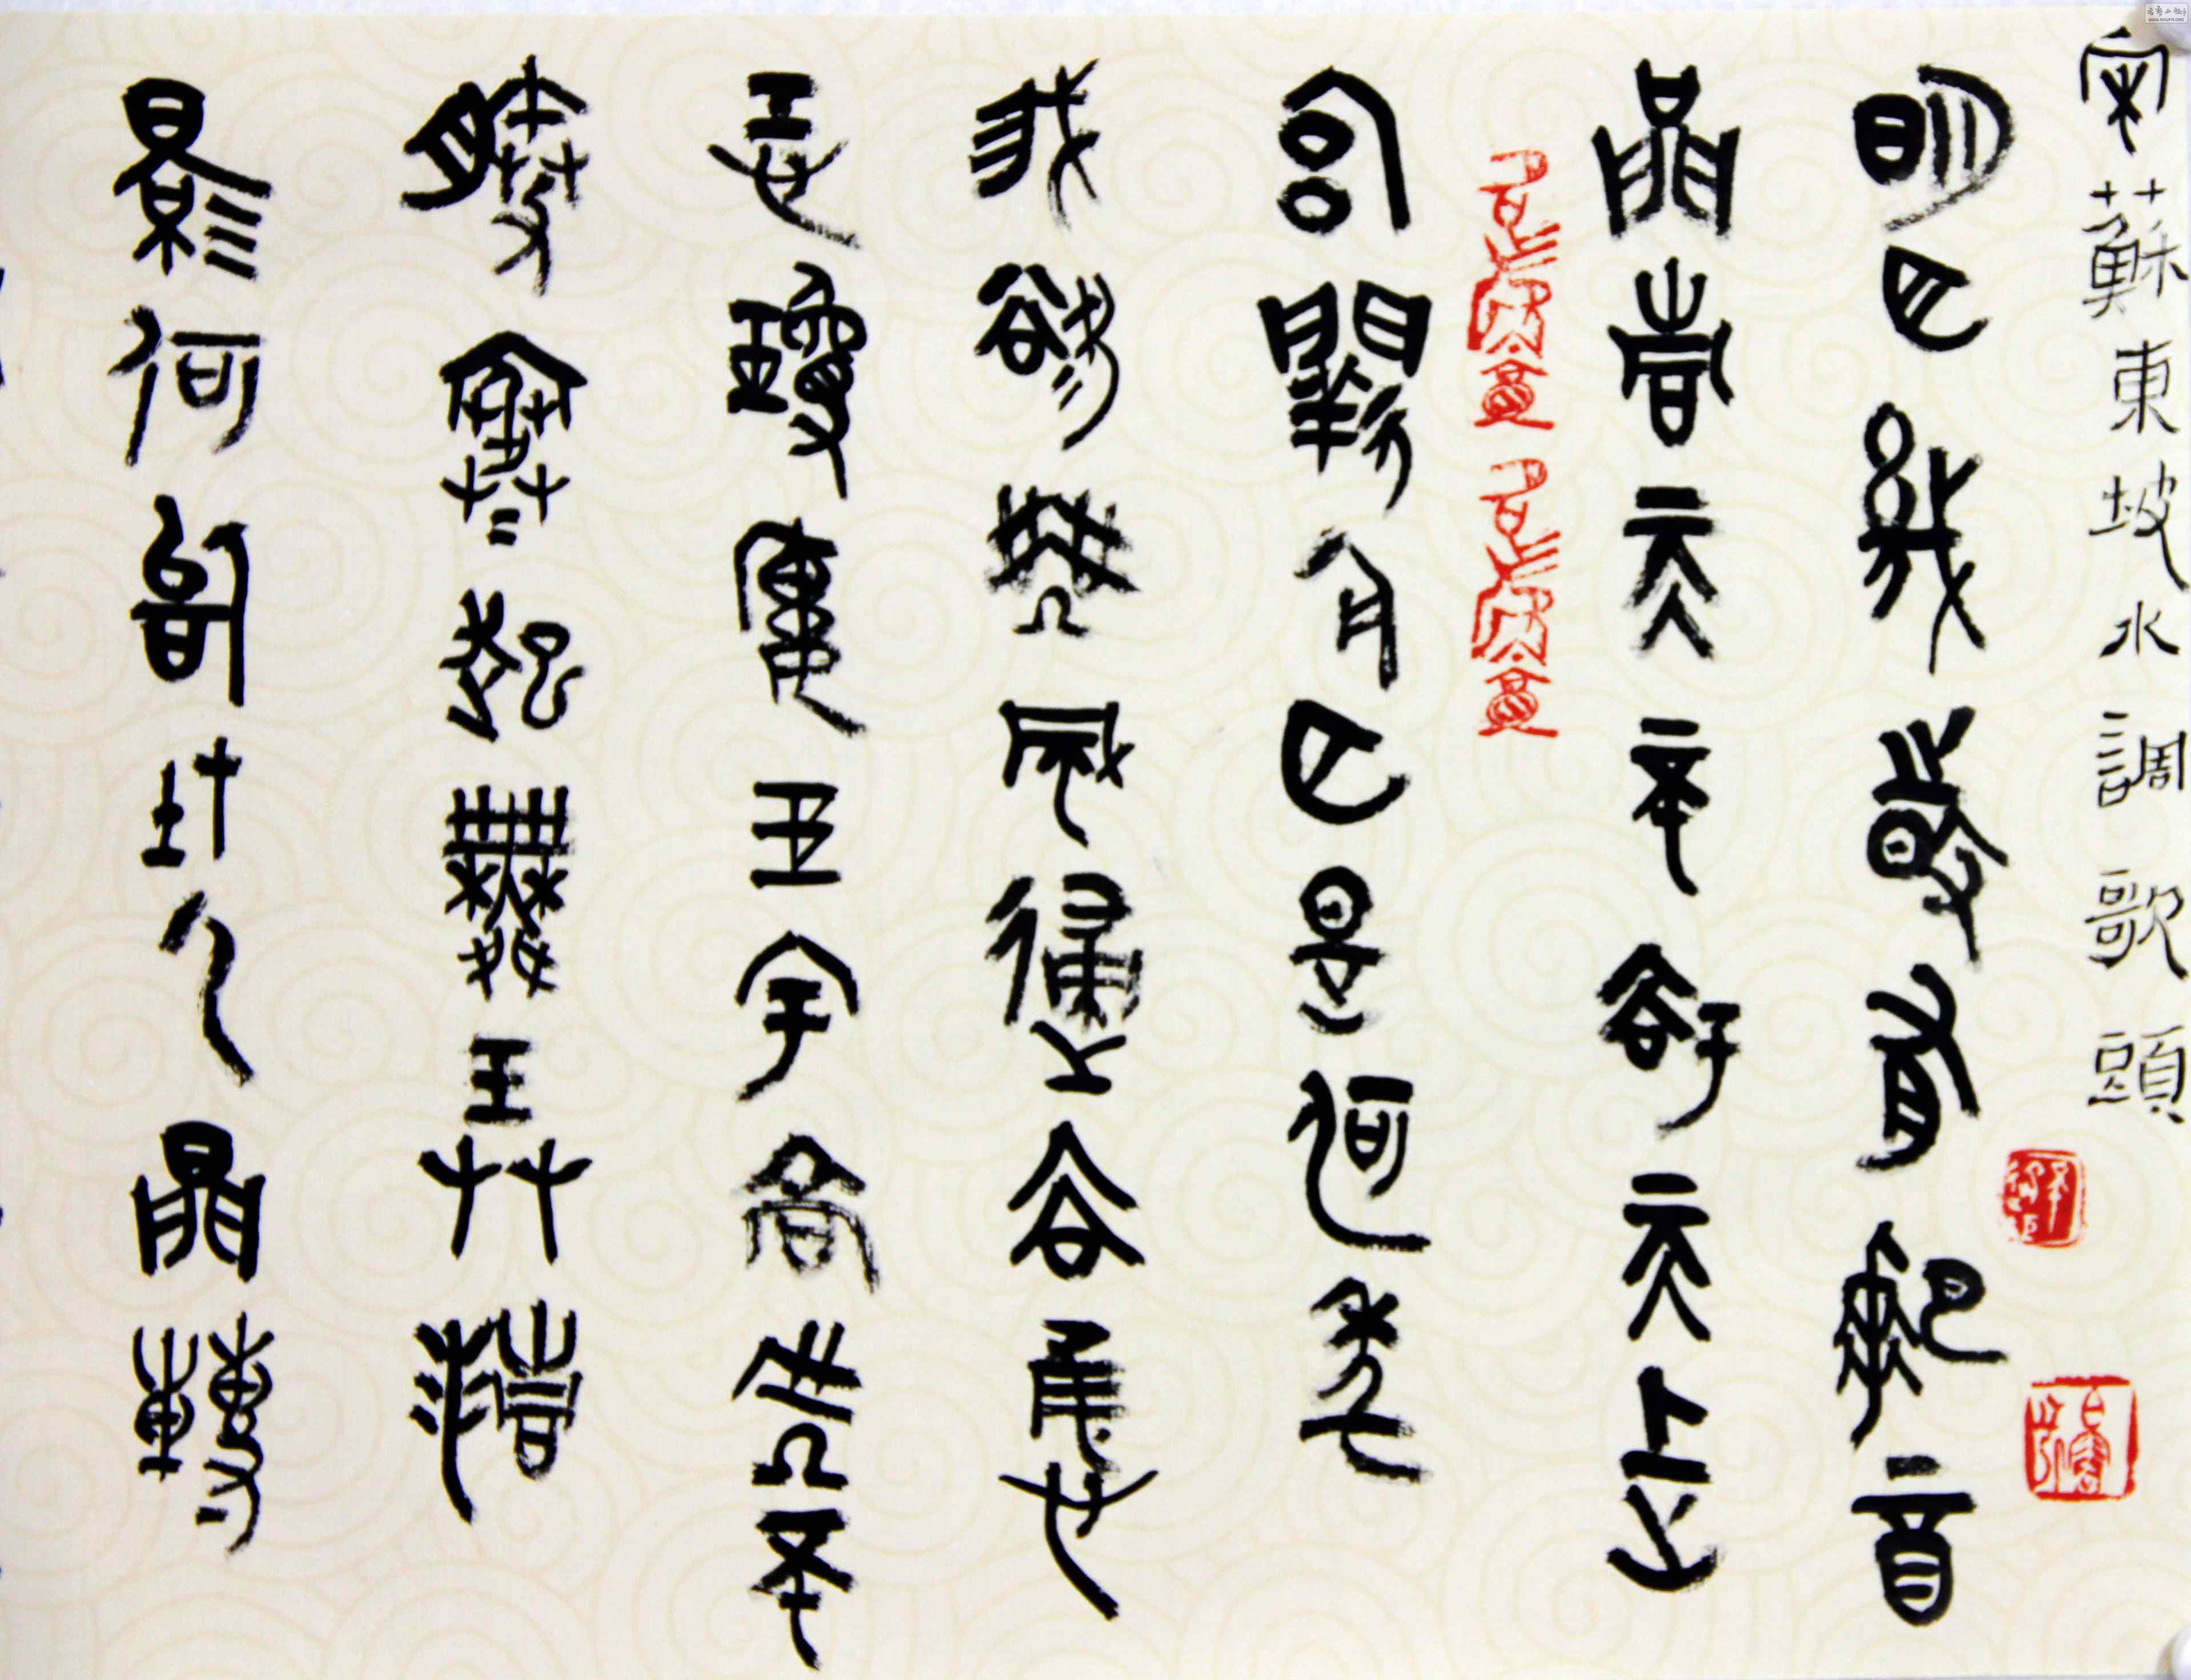 宋蘇東坡水調歌頭
明月幾時有把酒
問青天不知天上
宮闕今夕是何年
我欲乘風歸去
恐瓊樓玉宇高處不
勝寒起舞弄清
影何似在人間轉